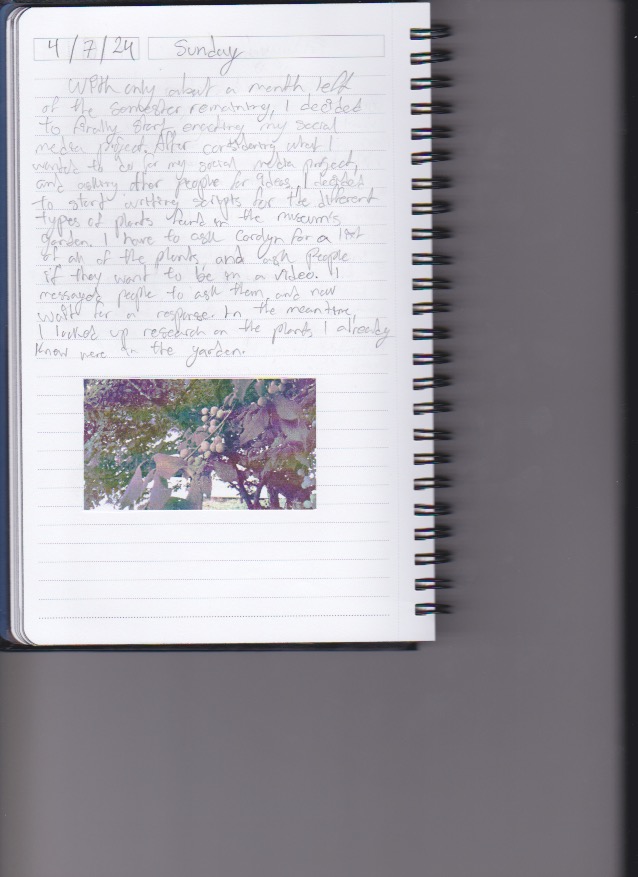 4/7/24 Sunday
With only about a month left
of the semester remaining, I decided
to finally start enacting my social
media project. After considering what I
wanted to do for my social media project,
and asking other people for ideas, I decided
to start writing scripts for the different
types of plants found in the museum's
garden. I have to ask Carolyn for a list
of all of the plants and ask people
if they want to be in a video. I
messaged people to ask them, and now
wait for a response. In the meantime,
I looked up research on the plants I already
know were in the garden.